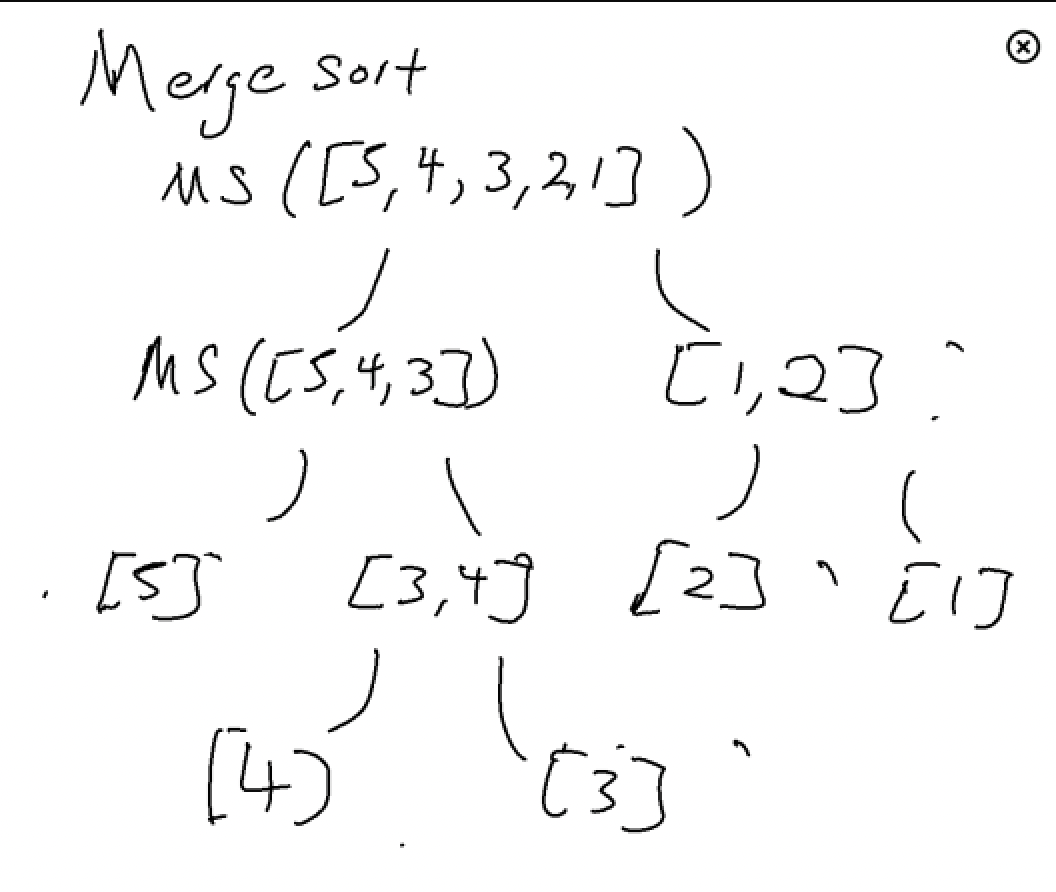 Merge sort
MS([5,4,3,2,1])
MS([5,4,3]) [1,2]
[5] [3,4] [2] [1]
[4) [3]